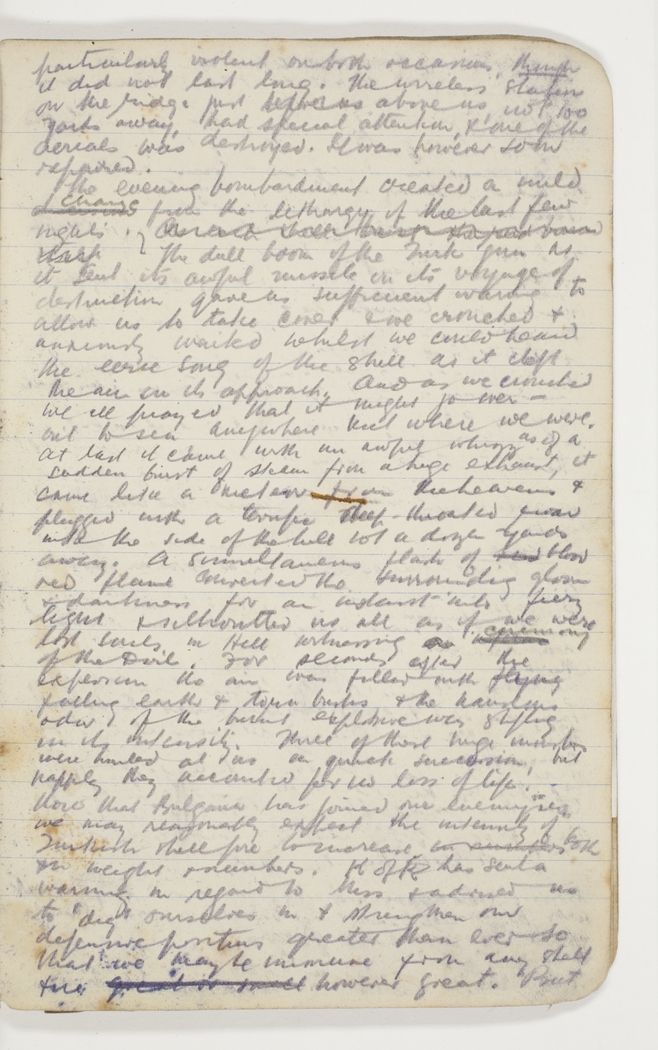 particularly violent on both occasions, though
it did not last long. The wireless station
on the ridge just above us not 100
yards away, had special attention, & one of the
aerials was destroyed. It was however soon
repaired.
The evening bombardment created a mild
change from the lethargy of the last few
nights.
The dull boom of the Turk gun as
it sent its awful missile on its voyage of
destruction gave us sufficient warning to
allow us to take cover & we crouched &
anxiously waited whilst we could hear
the eerie song of the shell as it cleft
the air in its approach. And as we crouched
we all prayed that it might go over –
out to sea anywhere but where we were.
At last it came with an awful whizz as of a
sudden burst of steam from a huge exhaust, it
came like a meteor from the heavens &
plugged with a terrific deep-throated
into the side of the hill not a dozen yards
away. A simultaneous flash of blood
red flame converted the surrounding gloom
& darkness for an instant into fiery
light & silhouetted us all as if we were
lost souls in Hell witnessing ceremony
of the Devil. For seconds after the
explosion the air was filled with flying
falling earth & torn bushes & the nauseous
odour of the burnt explosive was stifling
in its intensity. Three of these huge monsters
were hurled at us in quick succession, but
happily they accounted for no loss of life.
Now that Bulgaria has joined our enemies,
we may reasonably expect the intensity of
Turkish shell fire to increase both
in weight & numbers. H Qrs has sent a
warning in regard to this & advised us
to "dig" ourselves in & strengthen our
defensive positions greater than ever so
that we may be immune from any shell
fire great or small however great. But